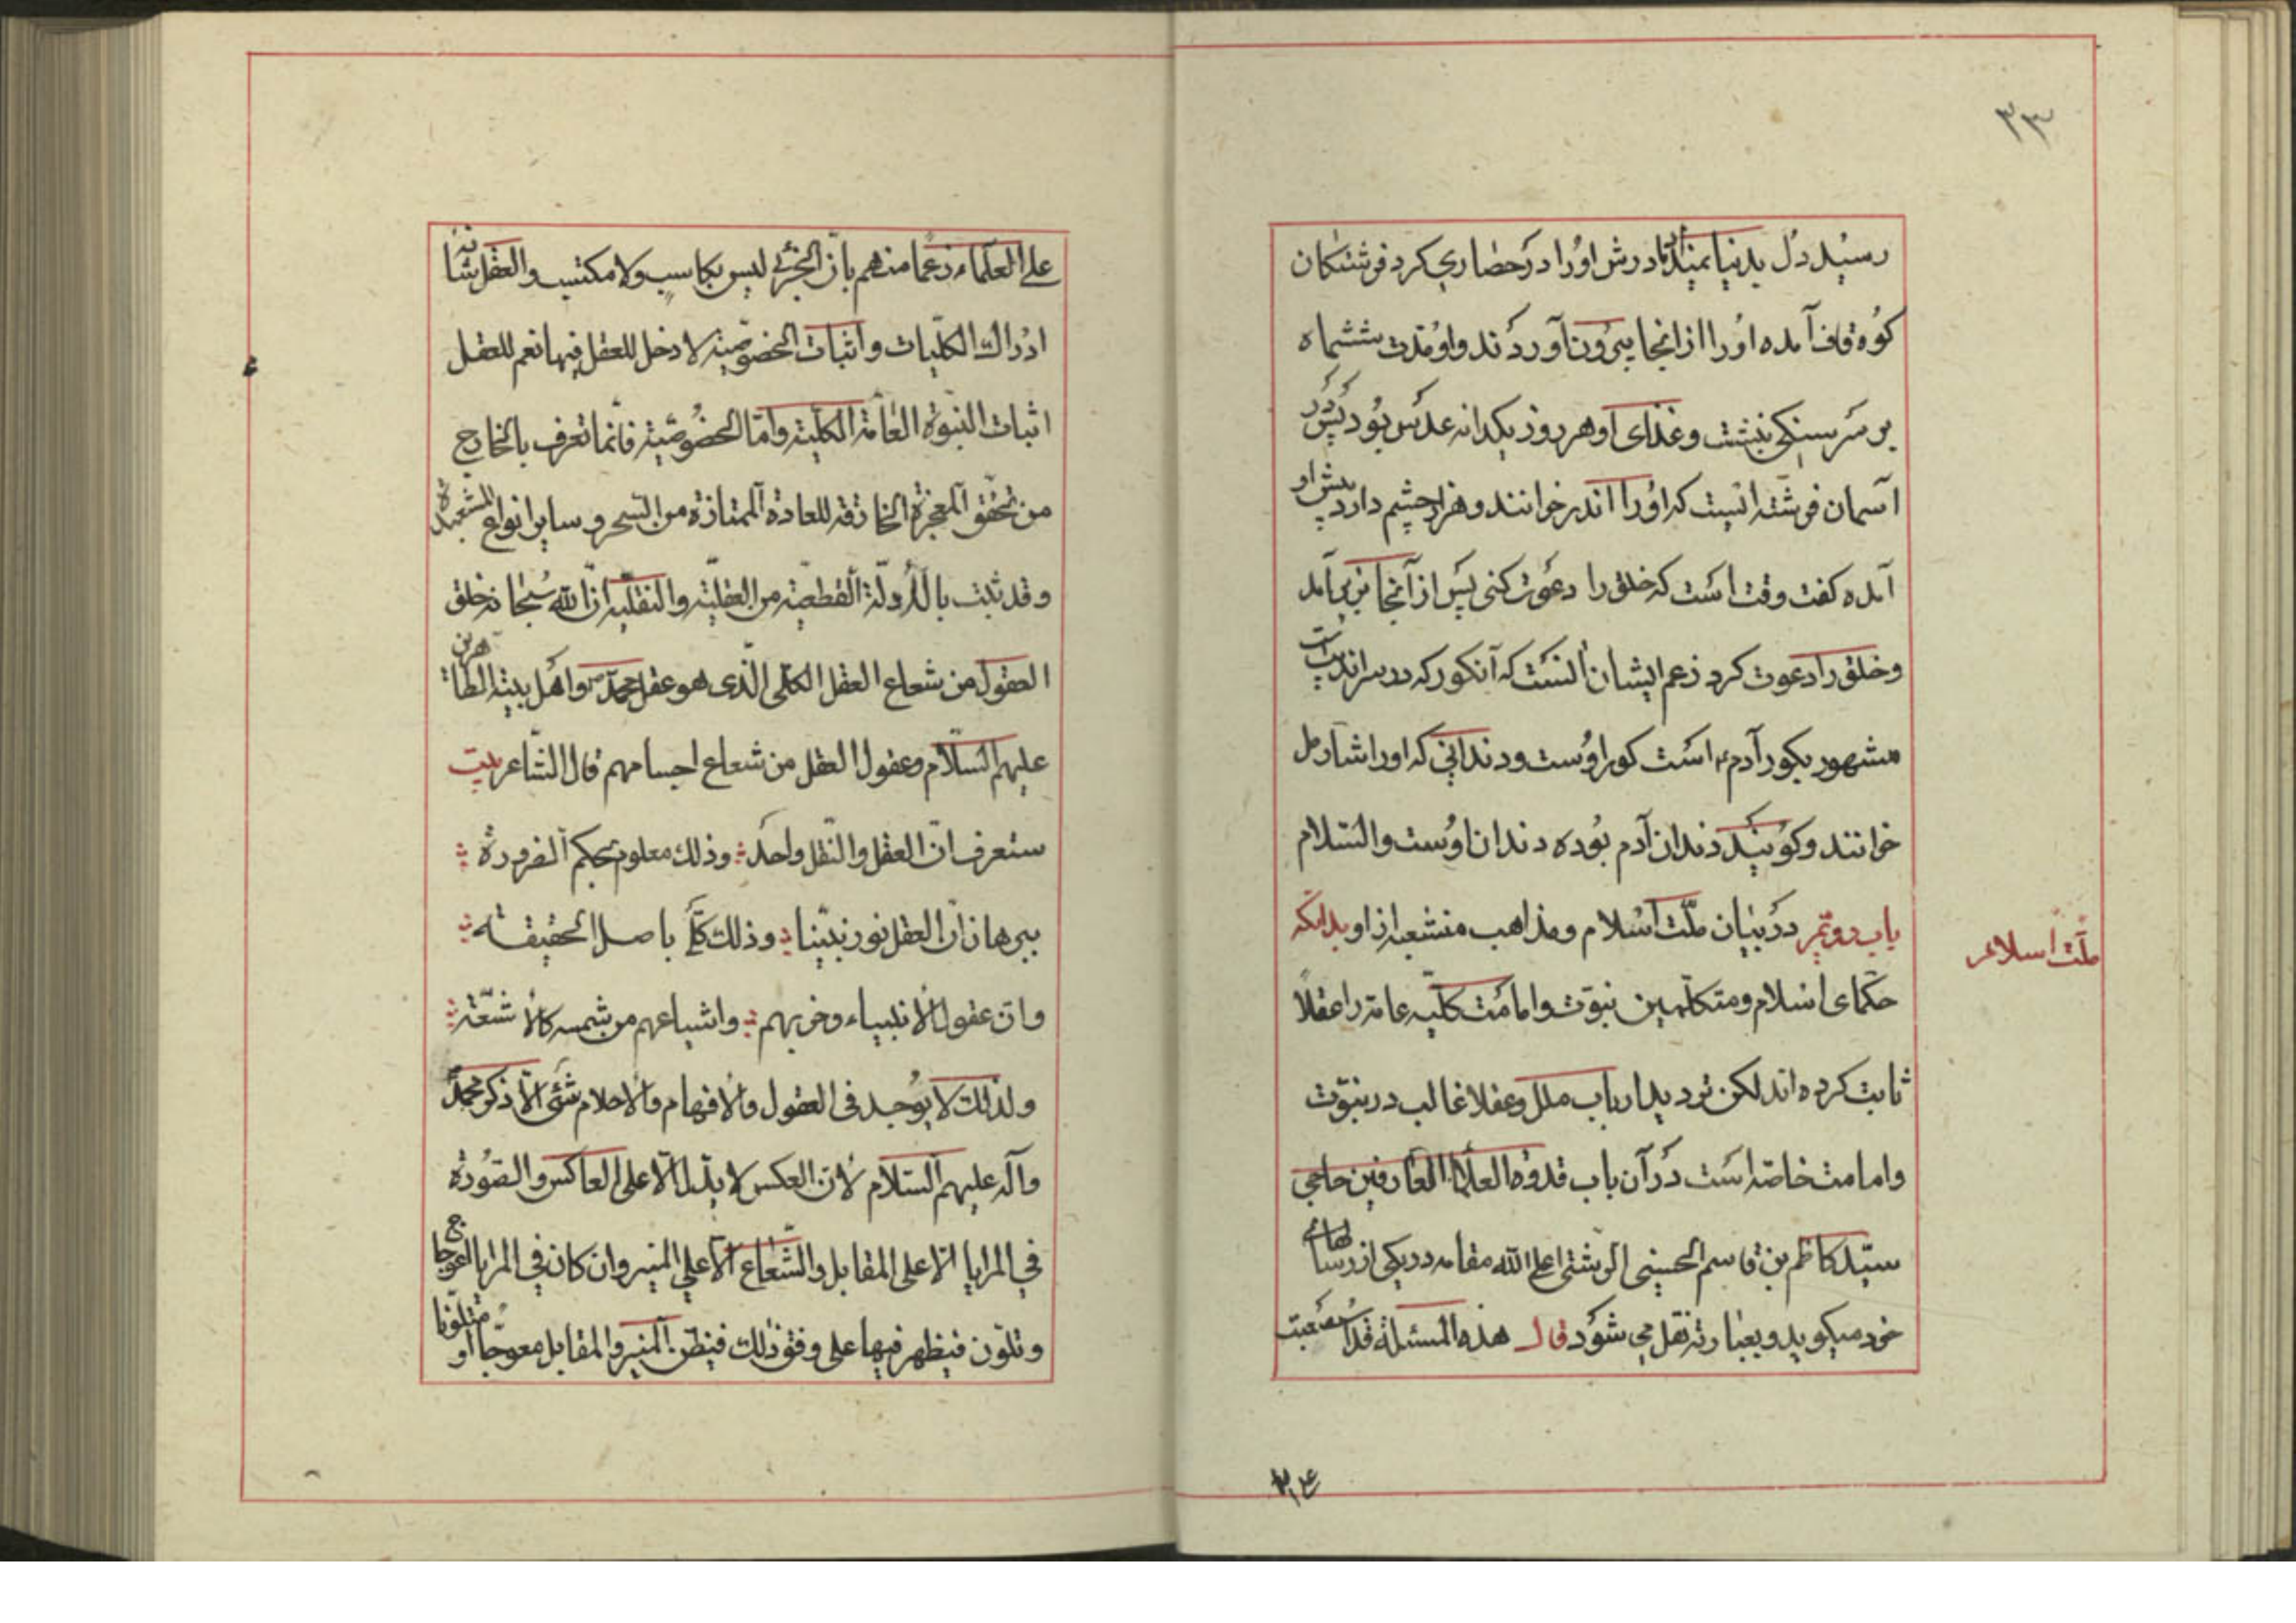 ۳۳
رسید دل بدنیا نمیداد مادرش اورا در حصاری کرد فرشتگان
کوه قاف آمده اورا از انجا بیرون آوردند واو مدت ششماه
بر سر سنکی بنشت وغذای او هر روز یکدانه عدس بود پس در
آسمان فرشته ایست که اورا اندر خوانند وهزار چشم دارد پیش او
آمده کفت وقت است که خلق را دعوت کنی پس از آنجا بزیر آمد
وخلق را دعوت کرد زعم ایشان آنست که آنکور که در سراندیب است
مشهور بکور آدم است کور اوست ودندانی که اورا شارمل
خوانند وکویند دندان آدم بوده دندان اوست والسلام
باب دویّم در بیان ملّت اسلام ومذاهب منشعبه از او بدانکه
ملّت اسلام
حکمای اسلام ومتکلّمین نبوّت وامامت کلّیه عامه را عقلاً
ثابت کرده اند لکن تردید ارباب ملل وعقلا غالب در نبوّت
وامامت خاصّه است در آن باب قدوه العلما العارفین حاجی
سیّد کاظم بن قاسم الحسینی الرشتی اعلی الله مقامه در یکی از رسالهای
خود میکوید وبعبارته نقل می شود قال هذه المسئلة قد صعبت
۳۴
علی العلماء زعما منهم بانّ الجزئی لیس بکاسب ولا مکتسب والعقل شانه
ادراك الکلّیات واثبات الخصوصّیة لا دخل للعقل فیها نعم للعقل
اثبات النبوّة العامّة الکلّیة وامّا الخصوصّیة فانّما تعرف بالخارج
من تحقّق المعجزة الخارقة للعادة الممتازة من السحر وسایر انواع الشعبده
وقد ثبت بالادلّة القطعیّة من العقلیّة والنقلیّه انّ الله سبحانه خلق
العقول من شعاع العقل الکلّی الّذی هو عقل محمّد ص واهل بیته الطاهرین
علیهم السّلام وعقول العقل من شعاع اجسامهم قال الشّاعر بیت
ستعرف انّ العقل والنّقل واحد وذلك معلوم بحکم الضرورة
ببرهان انّ العقل نور نبیّنا وذلك کلّی باصل الحقیقه
وانّ عقول الانبیاء وحزبهم واشیاعهم من شمسه کالاشعّة
ولذلك لا یوجد فی العقول والافهام والاحلام شئ الّا ذکر محمّد
وآله علیهم السّلام لانّ العکس لا یدلّ الّا علی العاکس والصّورة
فی المرایا الّا علی المقابل والشّعاع الّا علی المنیر وان کان فی المرایا اعوجاج
وتلوّن فیظهر فیها علی وفق ذلك فیظنّ المنیر والمقابل معوجّا او متلوّنا